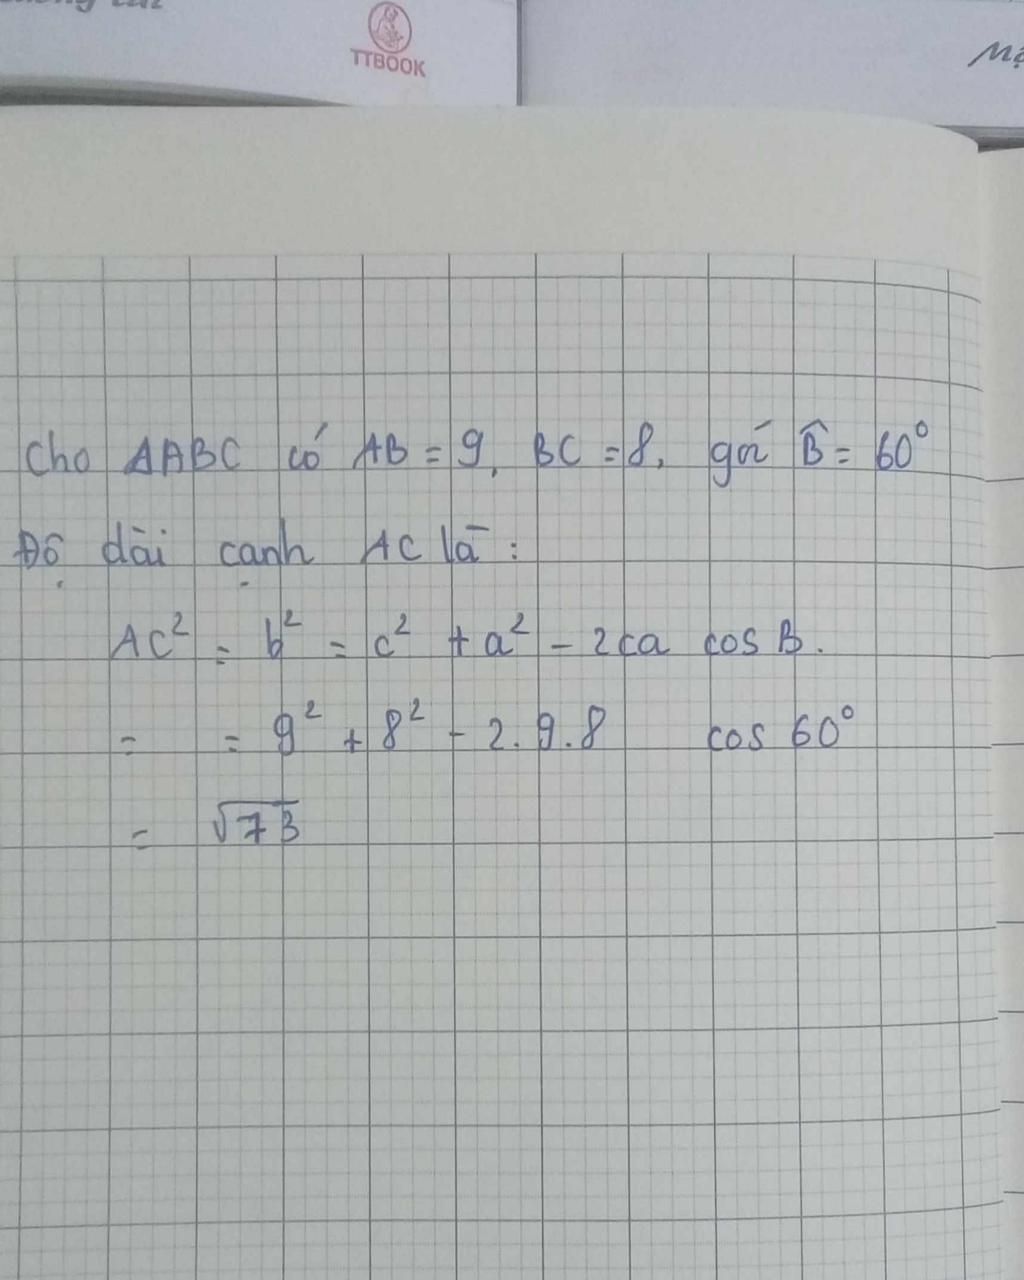 TTBOOK
Cho ΔABC có AB = 9, BC = 8, góc B̂ = 60°
Độ dài cạnh AC là :
AC² = b² = c² + a² - 2ca cos B.
= = 9² + 8² - 2.9.8 cos 60°
= √73